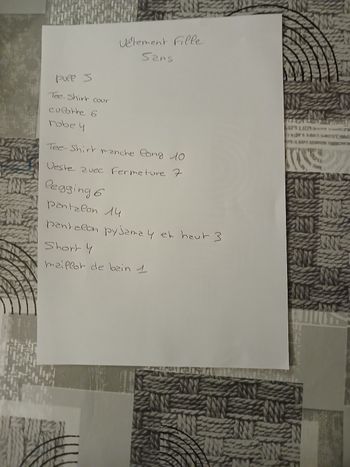 Vêtement Fille
5 ans
pull 5
Tee-Shirt cour
culotte 6
robe 4
Tee-Shirt manche long 10
Veste avec Fermeture 7
legging 6
pantalon 14
pantalon pyjama 4 et haut 3
Short 4
maillot de bain 1